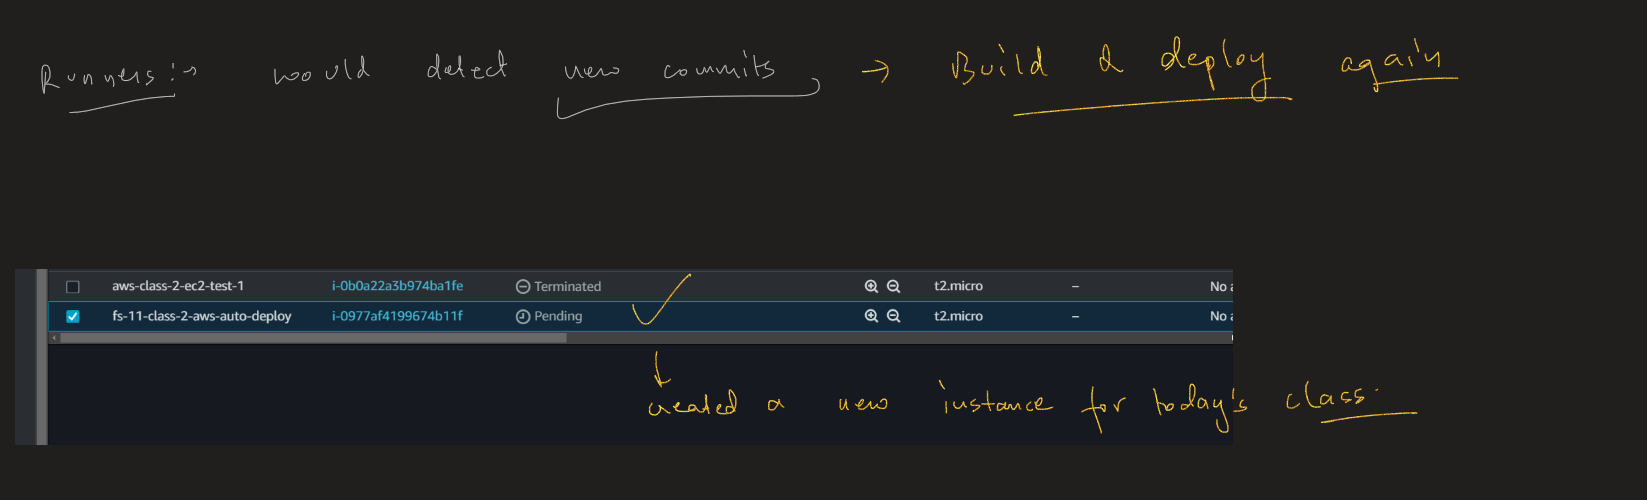 Runners:→ would detect new commits → Build & deploy again
aws-class-2-ec2-test-1 i-0b0a22a3b974ba1fe Terminated t2.micro – No a
fs-11-class-2-aws-auto-deploy i-0977af4199674b11f Pending t2.micro – No a
created a new instance for today's class.